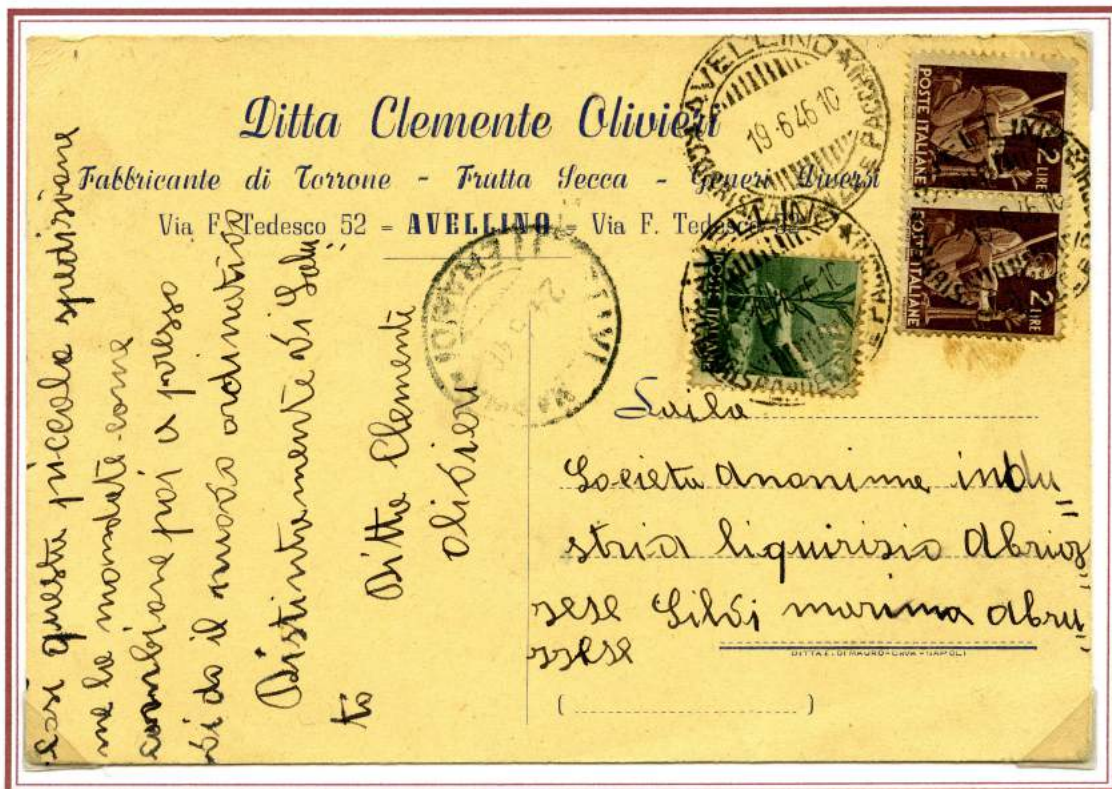 Ditta Clemente Olivieri
Fabbricante di Torrone - Frutta Secca - Generi Diversi
Via F. Tedesco 52 = AVELLINO = Via F. Tedesco 52
AVELLINO
19·6·46·10
POSTE ITALIANE
2 LIRE
POSTE ITALIANE
2 LIRE
così questa piccola spedizione
me la mandate come
combiane poi a presso
vi do il nuovo ordinativo
Distintamente vi Salu
to
Ditta Clemente
Olivieri
Saila
Societa Anonima indu
stria liquirizia Abruz
zese Silvi marina abru
zzese
DITTA E. DI MAURO - CAVA - NAPOLI
( )